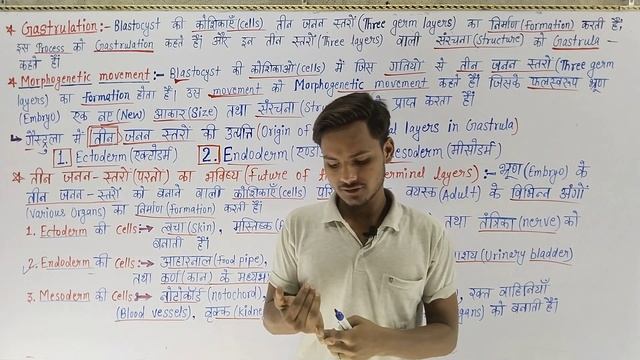 * Gastrulation:- Blastocyst की कोशिकाएँ (cells) तीन जनन स्तरों (Three germ layers) का निर्माण (formation) करती हैं,
इस Process को Gastrulation कहते हैं। और इन तीन स्तरों (Three layers) वाली संरचना (structure) को Gastrula
कहते हैं।
* Morphogenetic movement:- Blastocyst की कोशिकाओं (cells) में जिस गतियों से तीन जनन स्तरों (Three germ
layers) का formation होता है। उस movement को Morphogenetic movement कहते हैं। जिसके फलस्वरूप भ्रूण
(Embryo) एक नए (New) आकार (Size) तथा संरचना प्राप्त करता है।
गैस्ट्रुला में तीन जनन स्तरों की उत्पत्ति (Origin of layers in Gastrula)
1. Ectoderm (एक्टोडर्म) 2. Endoderm Mesoderm (मीसोडर्म)
* तीन जनन-स्तरों (परतों) का भविष्य (Future of germinal layers):- भ्रूण (Embryo) के
तीन जनन-स्तरों को बनाने वाली कोशिकाएँ (cells) वयस्क (Adult) के विभिन्न अंगों
(Various Organs) का निर्माण (formation) करती हैं।
1. Ectoderm की Cells:→ त्वचा (skin), मस्तिष्क तथा तंत्रिका (nerve) को
बनाती हैं।
2. Endoderm की Cells:→ आहारनाल (food pipe), (Urinery bladder)
तथा कर्ण (कान) के मध्यभाग
3. Mesoderm की Cells→ नोटोकॉर्ड (notochord), रक्त वाहिनियाँ
(Blood vessels), वृक्क को बनाती है।